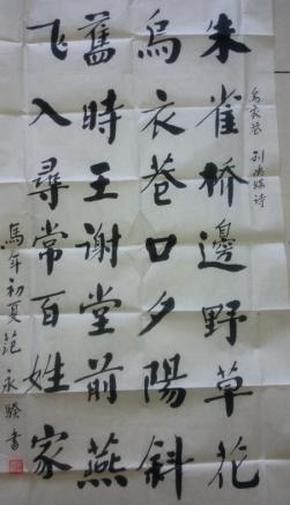 朱雀橋邊野草花
烏衣巷口夕陽斜
舊時王谢堂前燕
飞入尋常百姓家
烏衣巷 刘禹锡诗
馬年初夏范永 書